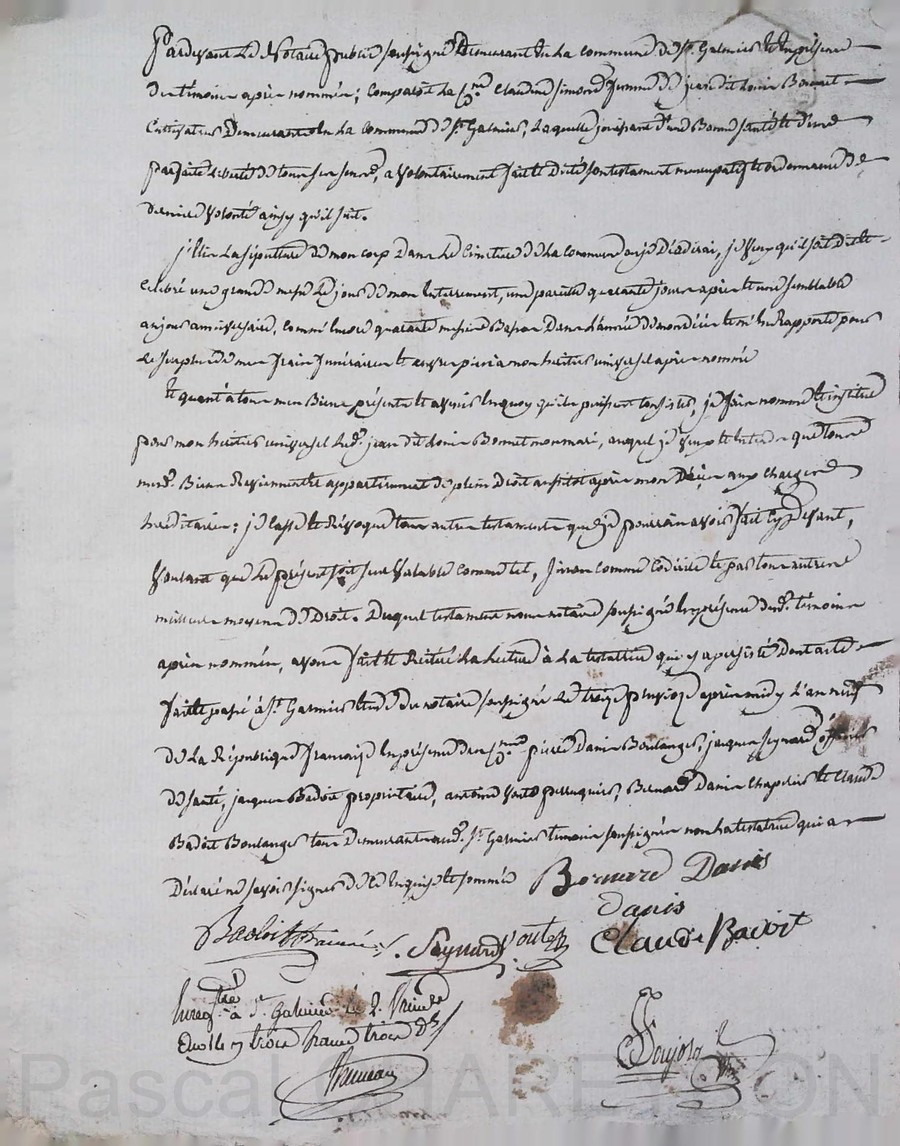 Pardevant Le Notaire public soussigné demeurant En La commune de St. Galmier Et En présence
des témoins après nommés; comparoit La Cne Claudine Simond femme de jean dit Louis Bonnet
Cultivateur demeurant En La commune de St. Galmier, Laquelle jouissant d'une Bonne santé et d'une
parfaite liberté de tous ses sens, a volontairement fait et dicté son testament nuncupatif et ordonnance de
dernière volonté ainsy qu'il suit.
j'Elis La sépulture de mon corp dans Le Cimetière de La Commune ou je décéderai, je veux qu'il soit dit et
celebré une grande messe Le jour de mon Enterrement, une pareille quarante jours après et une semblable
au jour anniversaire, comme Encore quarante messes Basses dans L'année de mon décès et m'En Rapporte pour
Le surplus de mes frais funéraires et œuvres pies à mon héritier universel après nommé
Et quant à tous mes Biens présents et avenir En quoy qu'ils puissent consister, je fais nomme et institue
pour mon héritier universel Led. jean dit Louis Bonnet mon mari, auquel je veux et Entends que tous
mesd. Biens Reviennent et appartiennent de plein Droit aussitôt après mon Décès aux charges
héréditaires; je Casse et Révoque tous autres testaments que je pourrais avoir fait Cy Devant,
Voulant que Le présent soit seul Valable comme tel, sinon comme Codicile et par tous autres
meilleurs moyens de Droit. Duquel testament nous notaire soussigné En présence desd. témoins
après nommés, avons fait et Réitéré La Lecture à La testatrice qui y a persisté Dont acte
fait et passé à St. Galmier Etude du notaire soussigné Le treize pluviose après midy L'an neuf
de La République francoise En présence des Cns pierre Danis Boulanger, jacques Seynard officier
de santé, jacques Badoit propriétaire, antoine Voute perruquier, Bernard Danis chapelier et Claude
Badoit Boulanger tous demeurants aud. St. Galmier témoins soussignés non La testatrice qui a
Déclaré ne savoir signer de ce Enquise et sommée
Bernard Danis
Danis
Badoit Seynard Voute Claude Badoit
Enregtré à St. Galmier le 2. Ventôse
an 9 trois francs trois
Pascal CHARETTON